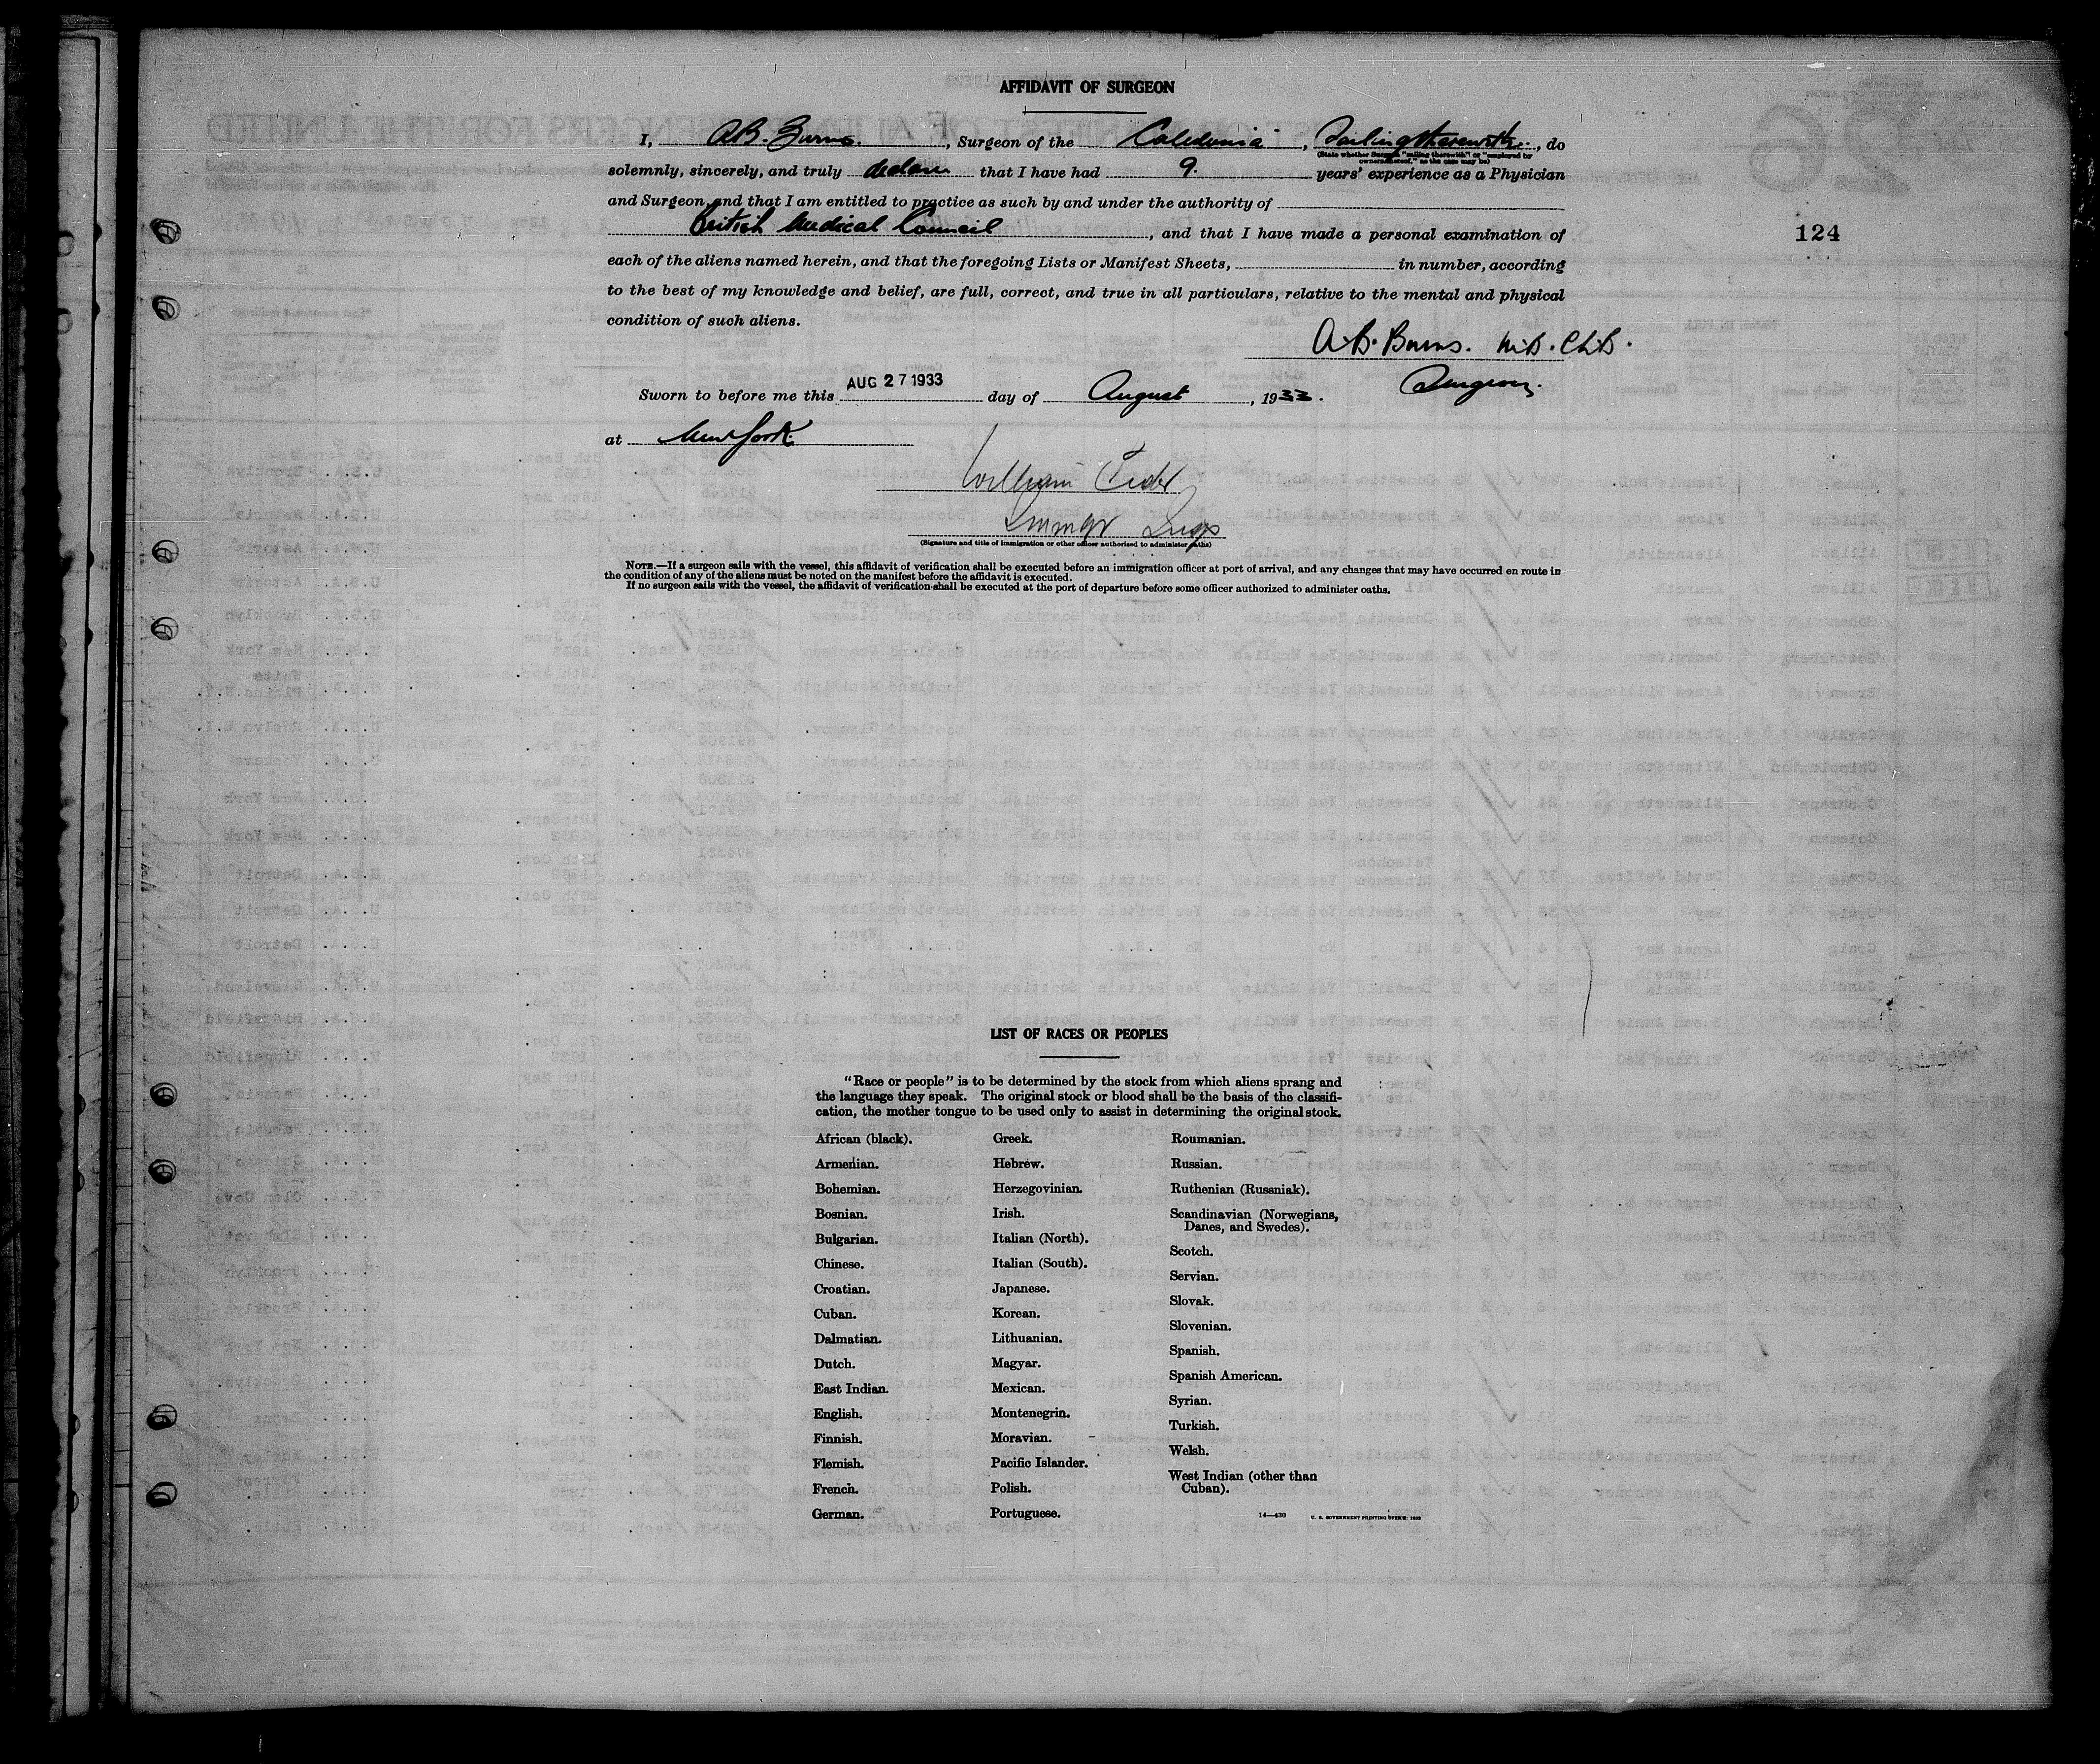 AFFIDAVIT OF SURGEON
I, A.B. Burns., Surgeon of the Caledonia, Sailing therewith, do
(State whether Surgeon "sailing therewith" or "employed by
owners thereof," as the case may be)
solemnly, sincerely, and truly declare that I have had 9. years' experience as a Physician
and Surgeon, and that I am entitled to practice as such by and under the authority of
British Medical Council, and that I have made a personal examination of
124
each of the aliens named herein, and that the foregoing Lists or Manifest Sheets, in number, according
to the best of my knowledge and belief, are full, correct, and true in all particulars, relative to the mental and physical
condition of such aliens.
A.B. Burns. M.B. Ch.B.
Surgeon.
Sworn to before me this AUG 27 1933 day of August, 1933.
at New York
William
Immgr Insp
(Signature and title of immigration or other officer authorized to administer oaths)
NOTE.—If a surgeon sails with the vessel, this affidavit of verification shall be executed before an immigration officer at port of arrival, and any changes that may have occurred en route in
the condition of any of the aliens must be noted on the manifest before the affidavit is executed.
If no surgeon sails with the vessel, the affidavit of verification shall be executed at the port of departure before some officer authorized to administer oaths.
LIST OF RACES OR PEOPLES
"Race or people" is to be determined by the stock from which aliens sprang and
the language they speak. The original stock or blood shall be the basis of the classifi-
cation, the mother tongue to be used only to assist in determining the original stock.
African (black).
Armenian.
Bohemian.
Bosnian.
Bulgarian.
Chinese.
Croatian.
Cuban.
Dalmatian.
Dutch.
East Indian.
English.
Finnish.
Flemish.
French.
German.
Greek.
Hebrew.
Herzegovinian.
Irish.
Italian (North).
Italian (South).
Japanese.
Korean.
Lithuanian.
Magyar.
Mexican.
Montenegrin.
Moravian.
Pacific Islander.
Polish.
Portuguese.
Roumanian.
Russian.
Ruthenian (Russniak).
Scandinavian (Norwegians,
Danes, and Swedes).
Scotch.
Servian.
Slovak.
Slovenian.
Spanish.
Spanish American.
Syrian.
Turkish.
Welsh.
West Indian (other than
Cuban).
14—430 U. S. GOVERNMENT PRINTING OFFICE